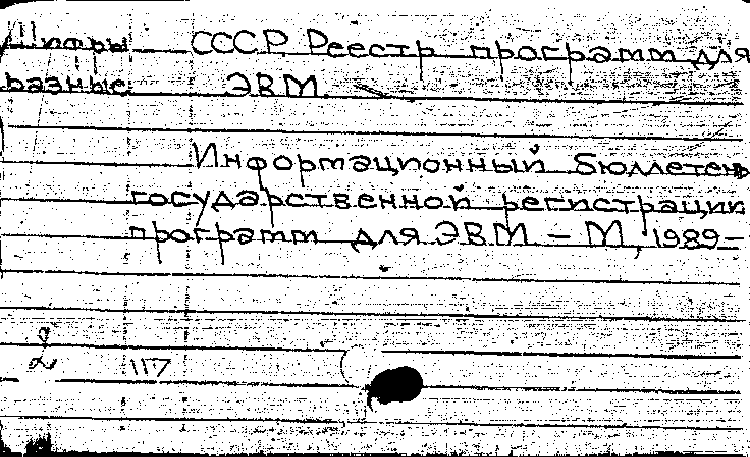 Шифры СССР Реестр программ для
разные ЭВМ.
Информационный бюллетень
государственной регистрации
программ для ЭВМ – М, 1989–
2 117